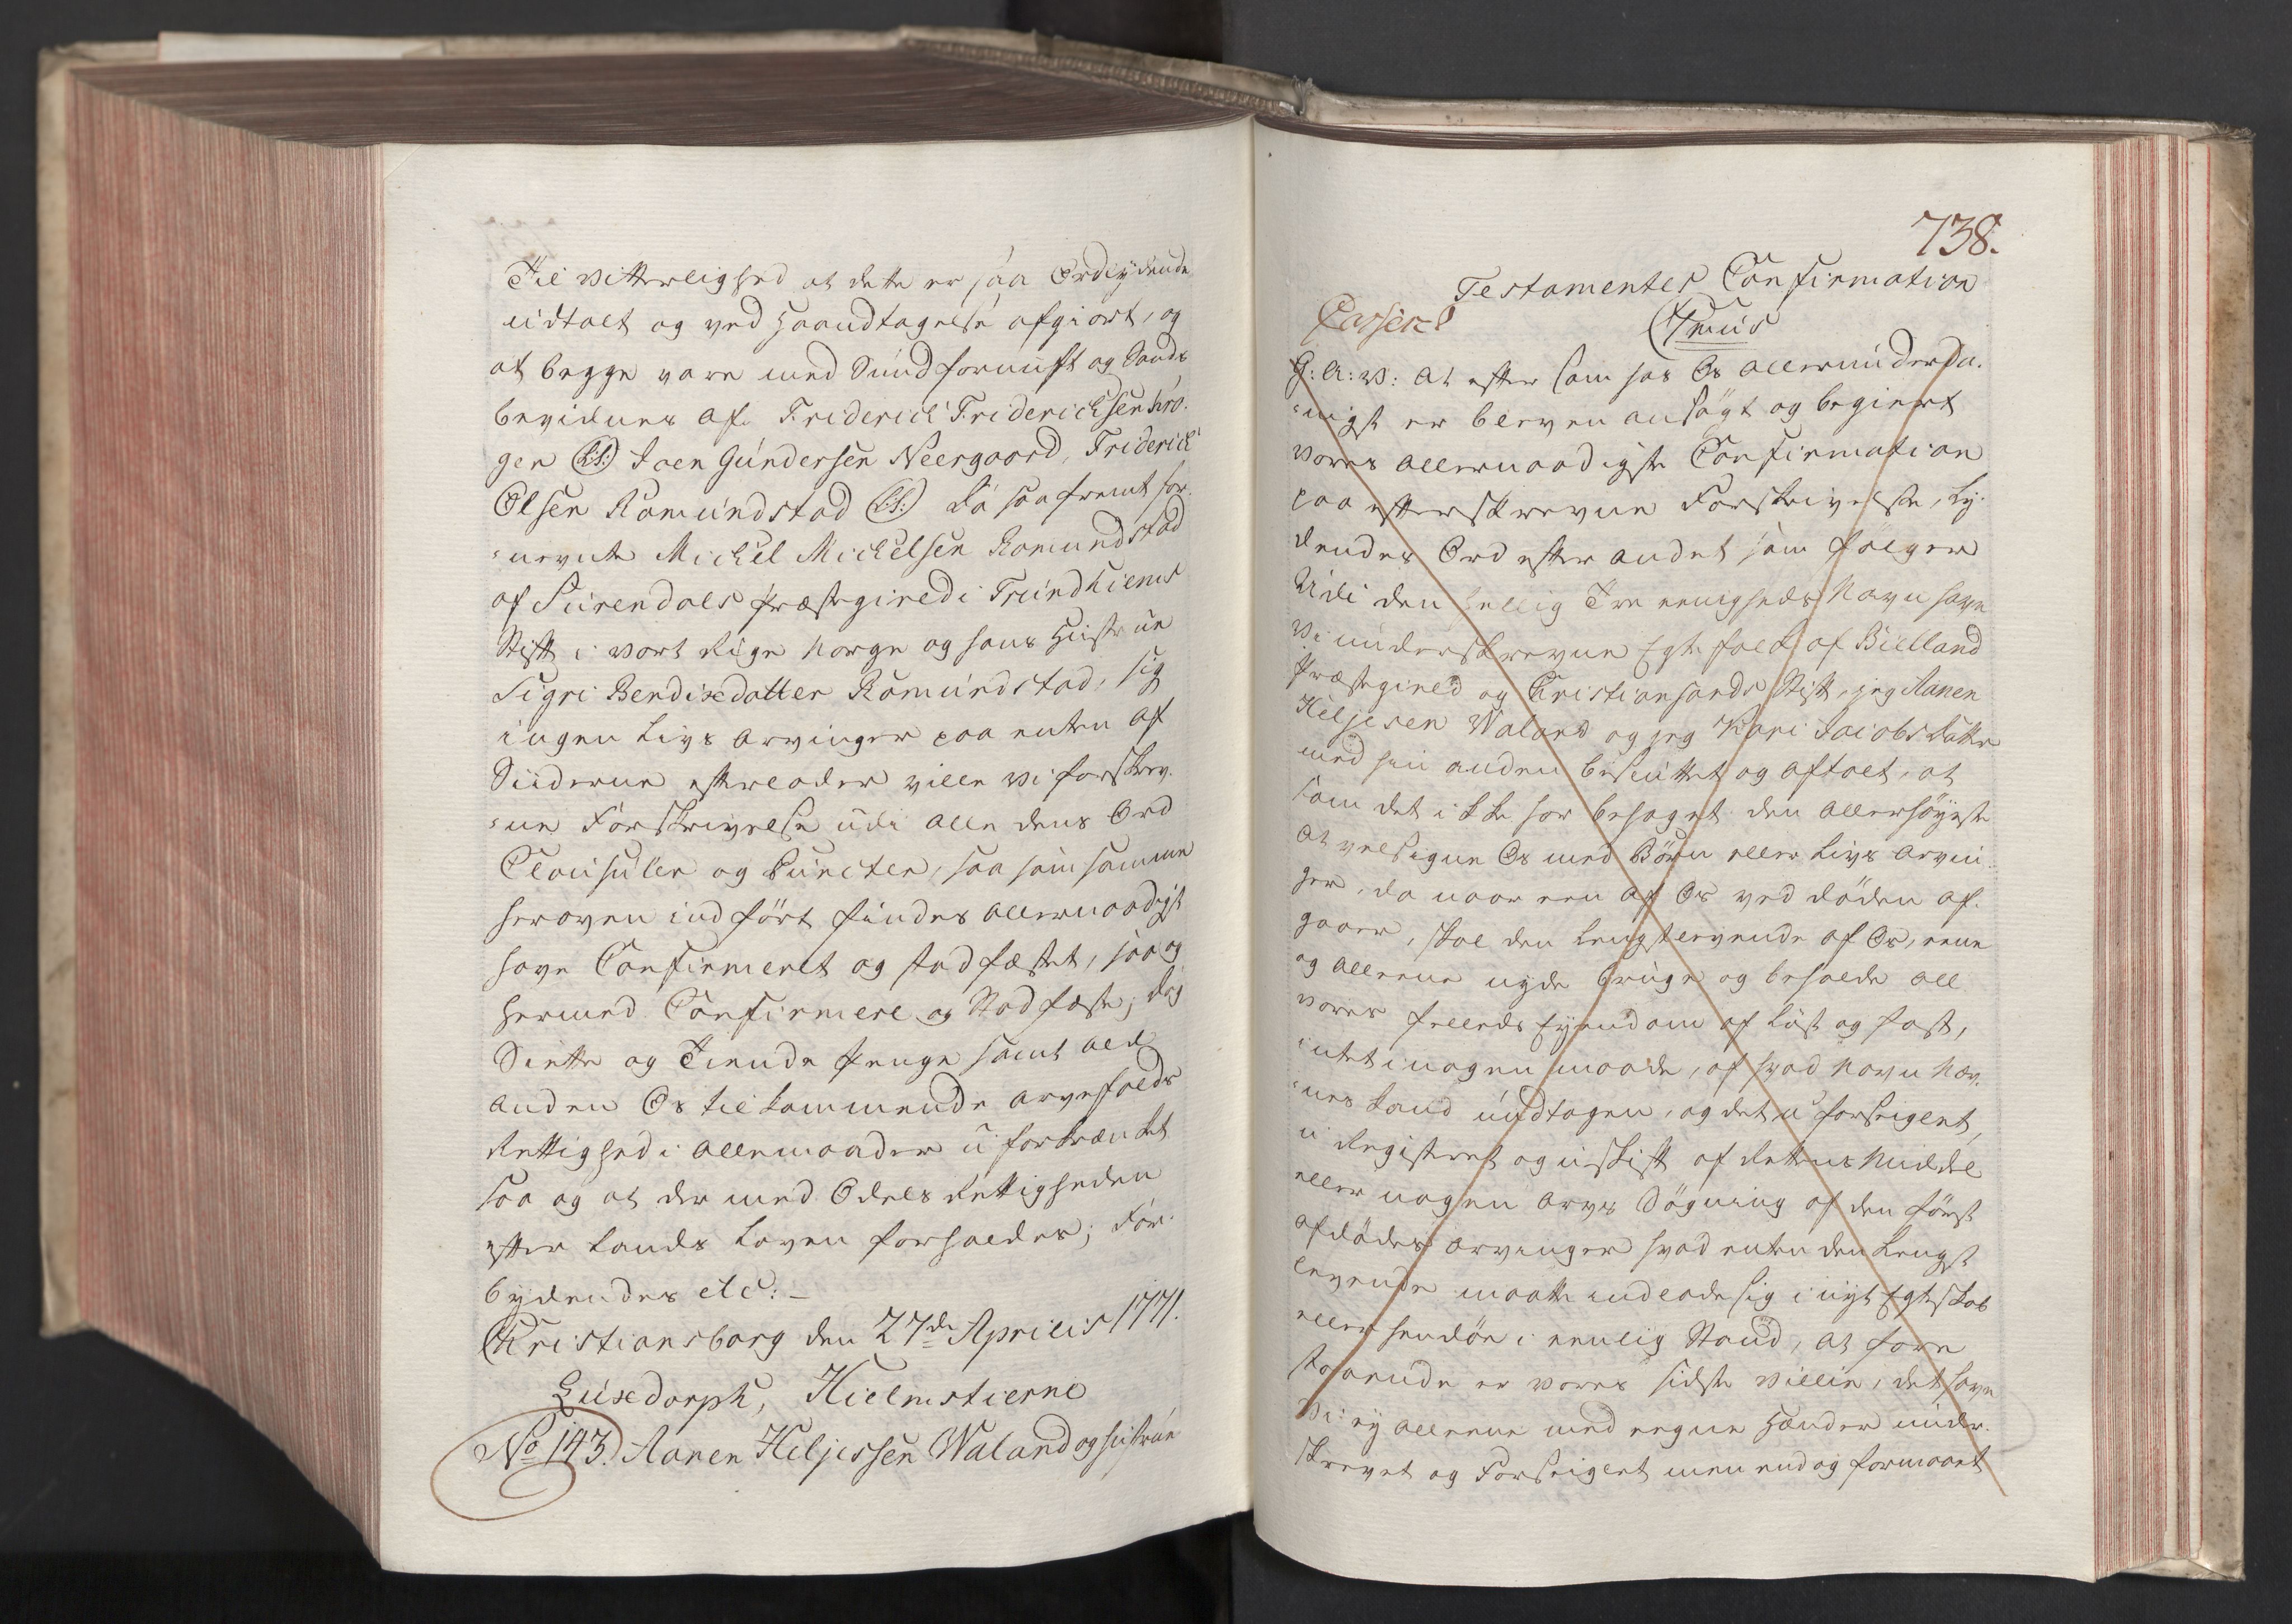 Til Vitterlighed at dette er saa Ordlydende
udtalt og ved Haandtagelse afgiort, og
at begge vare med Sund fornuft og Sands
bevidnes af. Friderich Friderichsen Kro-
gen (LS:) Joen Gundersen Neergaard, Friderich
Olsen Romundstad (LS:) Da saafremt for-
=nevnte Michel Michelsen Romundstad
af Surendals Præstegield i Trundhiems
Stift i vort Rige Norge og hans Hustrue
Sigri Bendixdatter Romundstad, sig
ingen Livs Arvinger paa enten af
Siiderne efterlader ville Vi forskrev-
=ne Forskrivelse udi alle dens Ord
Clausuler og Puncter, saa som samme
heroven indført findes allernaadigst
have Confirmeret og stadfæstet, saa og
hermed Confirmere og Stadfæste; dog
Siette og Tiende Penge samt ald
anden Os tilkommende Arvefalds
Rettighed i allemaader uforkrænket
saa og at der med Odels Rettigheden
efter Lands Loven forholdes; For-
bydendes etc: –
Christiansborg den 27de Aprilis 1771.
Luxdorph, Hielmstierne
No 143. Aanen Heljessen Waland og Hustrue
738.
Testamentes Confirmation
Casser:
Gratis
G: A: V: At efter som hos Os allerunderda-
=nigst er bleven ansøgt og begiert
vores allernaadigste Confirmation
paa efterskrevne Forskrivelse, Ly-
dendes Ord efter andet som følger
Udi den hellig Tre eenigheds Navn have
Vi underskrevne Egtefolk af Bielland
Præstegield og Christiansands Stift, jeg Aanen
Heljesen Waland og jeg Kari Jacobs datter
med hin anden besluttet og aftalt, at
som det ikke har behaget den Allerhøyeste
at velsigne Os med Børn eller Livs Arvin-
ger, da naar een af Os ved døden af-
gaaer, skal den Længstlevende af Os, eene
og alleene nyde bruge og beholde all
vores fælleds Eyendom af Løst og fast,
intet i nogen maade, af hvad Navn Nev-
=nes kand undtagen, og det uforseiglet,
u Registret og uskift af Rettens Middel
eller nogen Arvs Søgning af den først
afdødes Arvinger hvad enten den Længst
levende maatte indlade sig i nyt Egteskab
eller hendøe i eenlig Stand, at fore
staaende er vores sidste Villie, det have
Vi ey alleene med eegne Hænder under-
skrevet og Forseiglet men end og formaaet